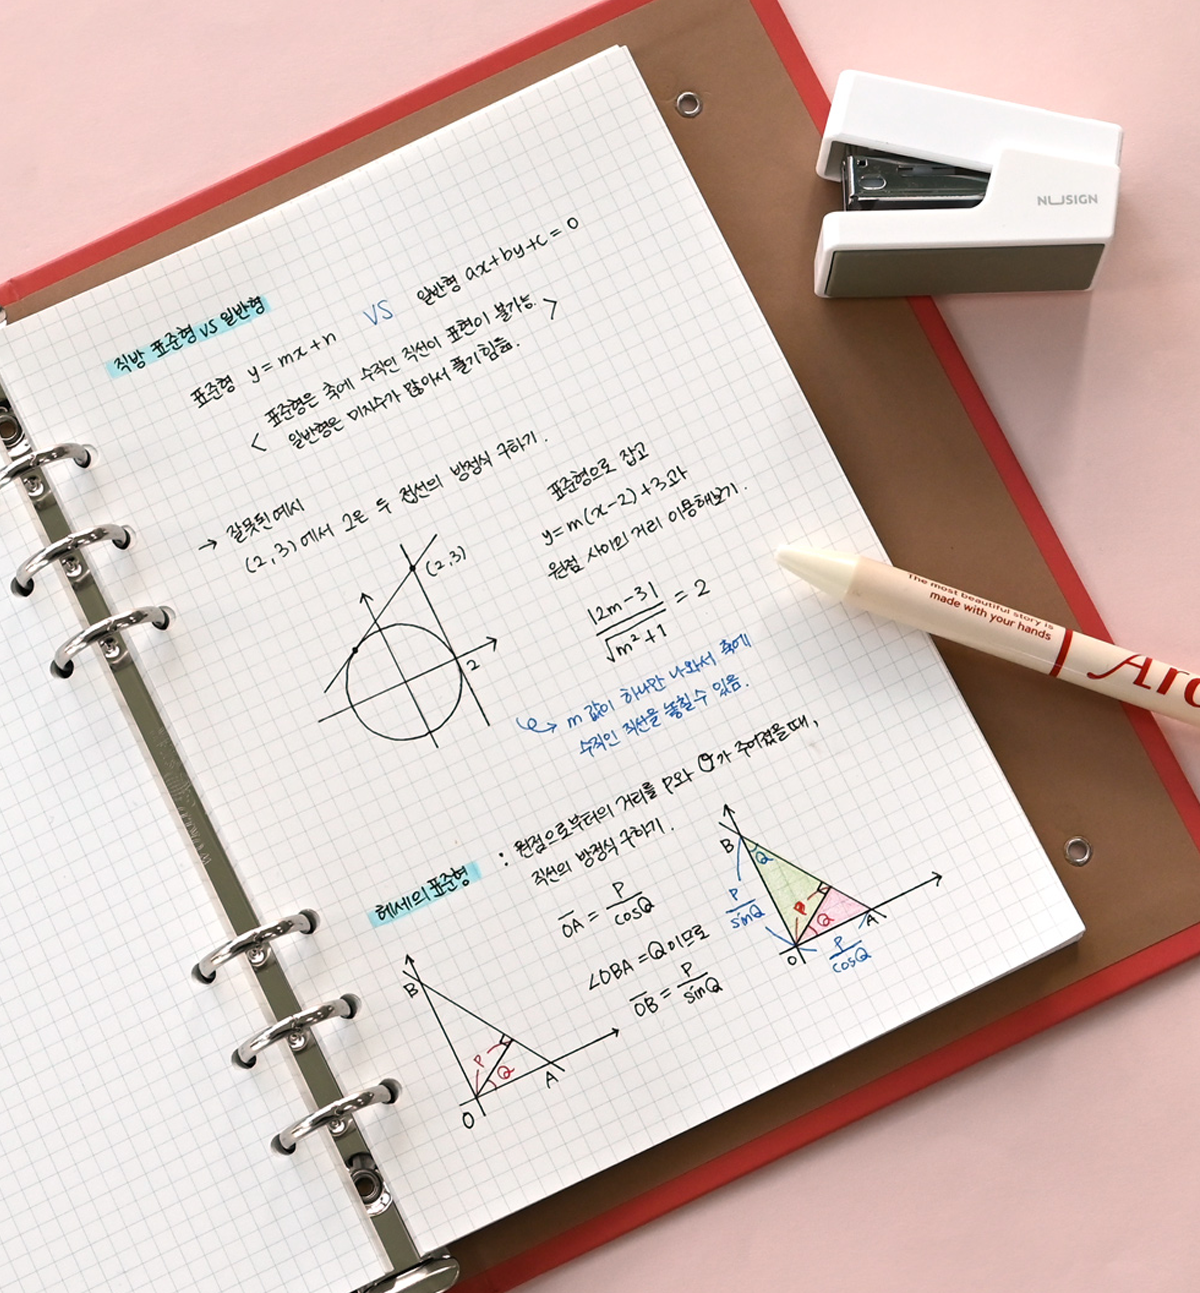 직방 표준형 VS 일반형
표준형 y = mx + n VS 일반형 ax + by + c = 0
< 표준형은 축에 수직인 직선이 표현이 불가능. >
일반형은 미지수가 많아서 풀기 힘듦.
→ 잘못된 예시
(2, 3) 에서 그은 두 접선의 방정식 구하기.
(2, 3)
2
표준형으로 잡고
y = m(x-2) + 3과
원점 사이의 거리 이용해보기.
|2m-3| / √m²+1 = 2
→ m 값이 하나만 나와서 축에
수직인 직선을 놓칠 수 있음.
헤세의 표준형 : 원점으로부터의 거리를 P와 θ가 주어졌을 때,
직선의 방정식 구하기.
OA = P / cosQ
∠OBA = Q 이므로
OB = P / sinQ
B
P
Q
O
A
B
Q
P / sinQ
P
Q
A
O
P / cosQ
NUSIGN
The most beautiful story is
made with your hands